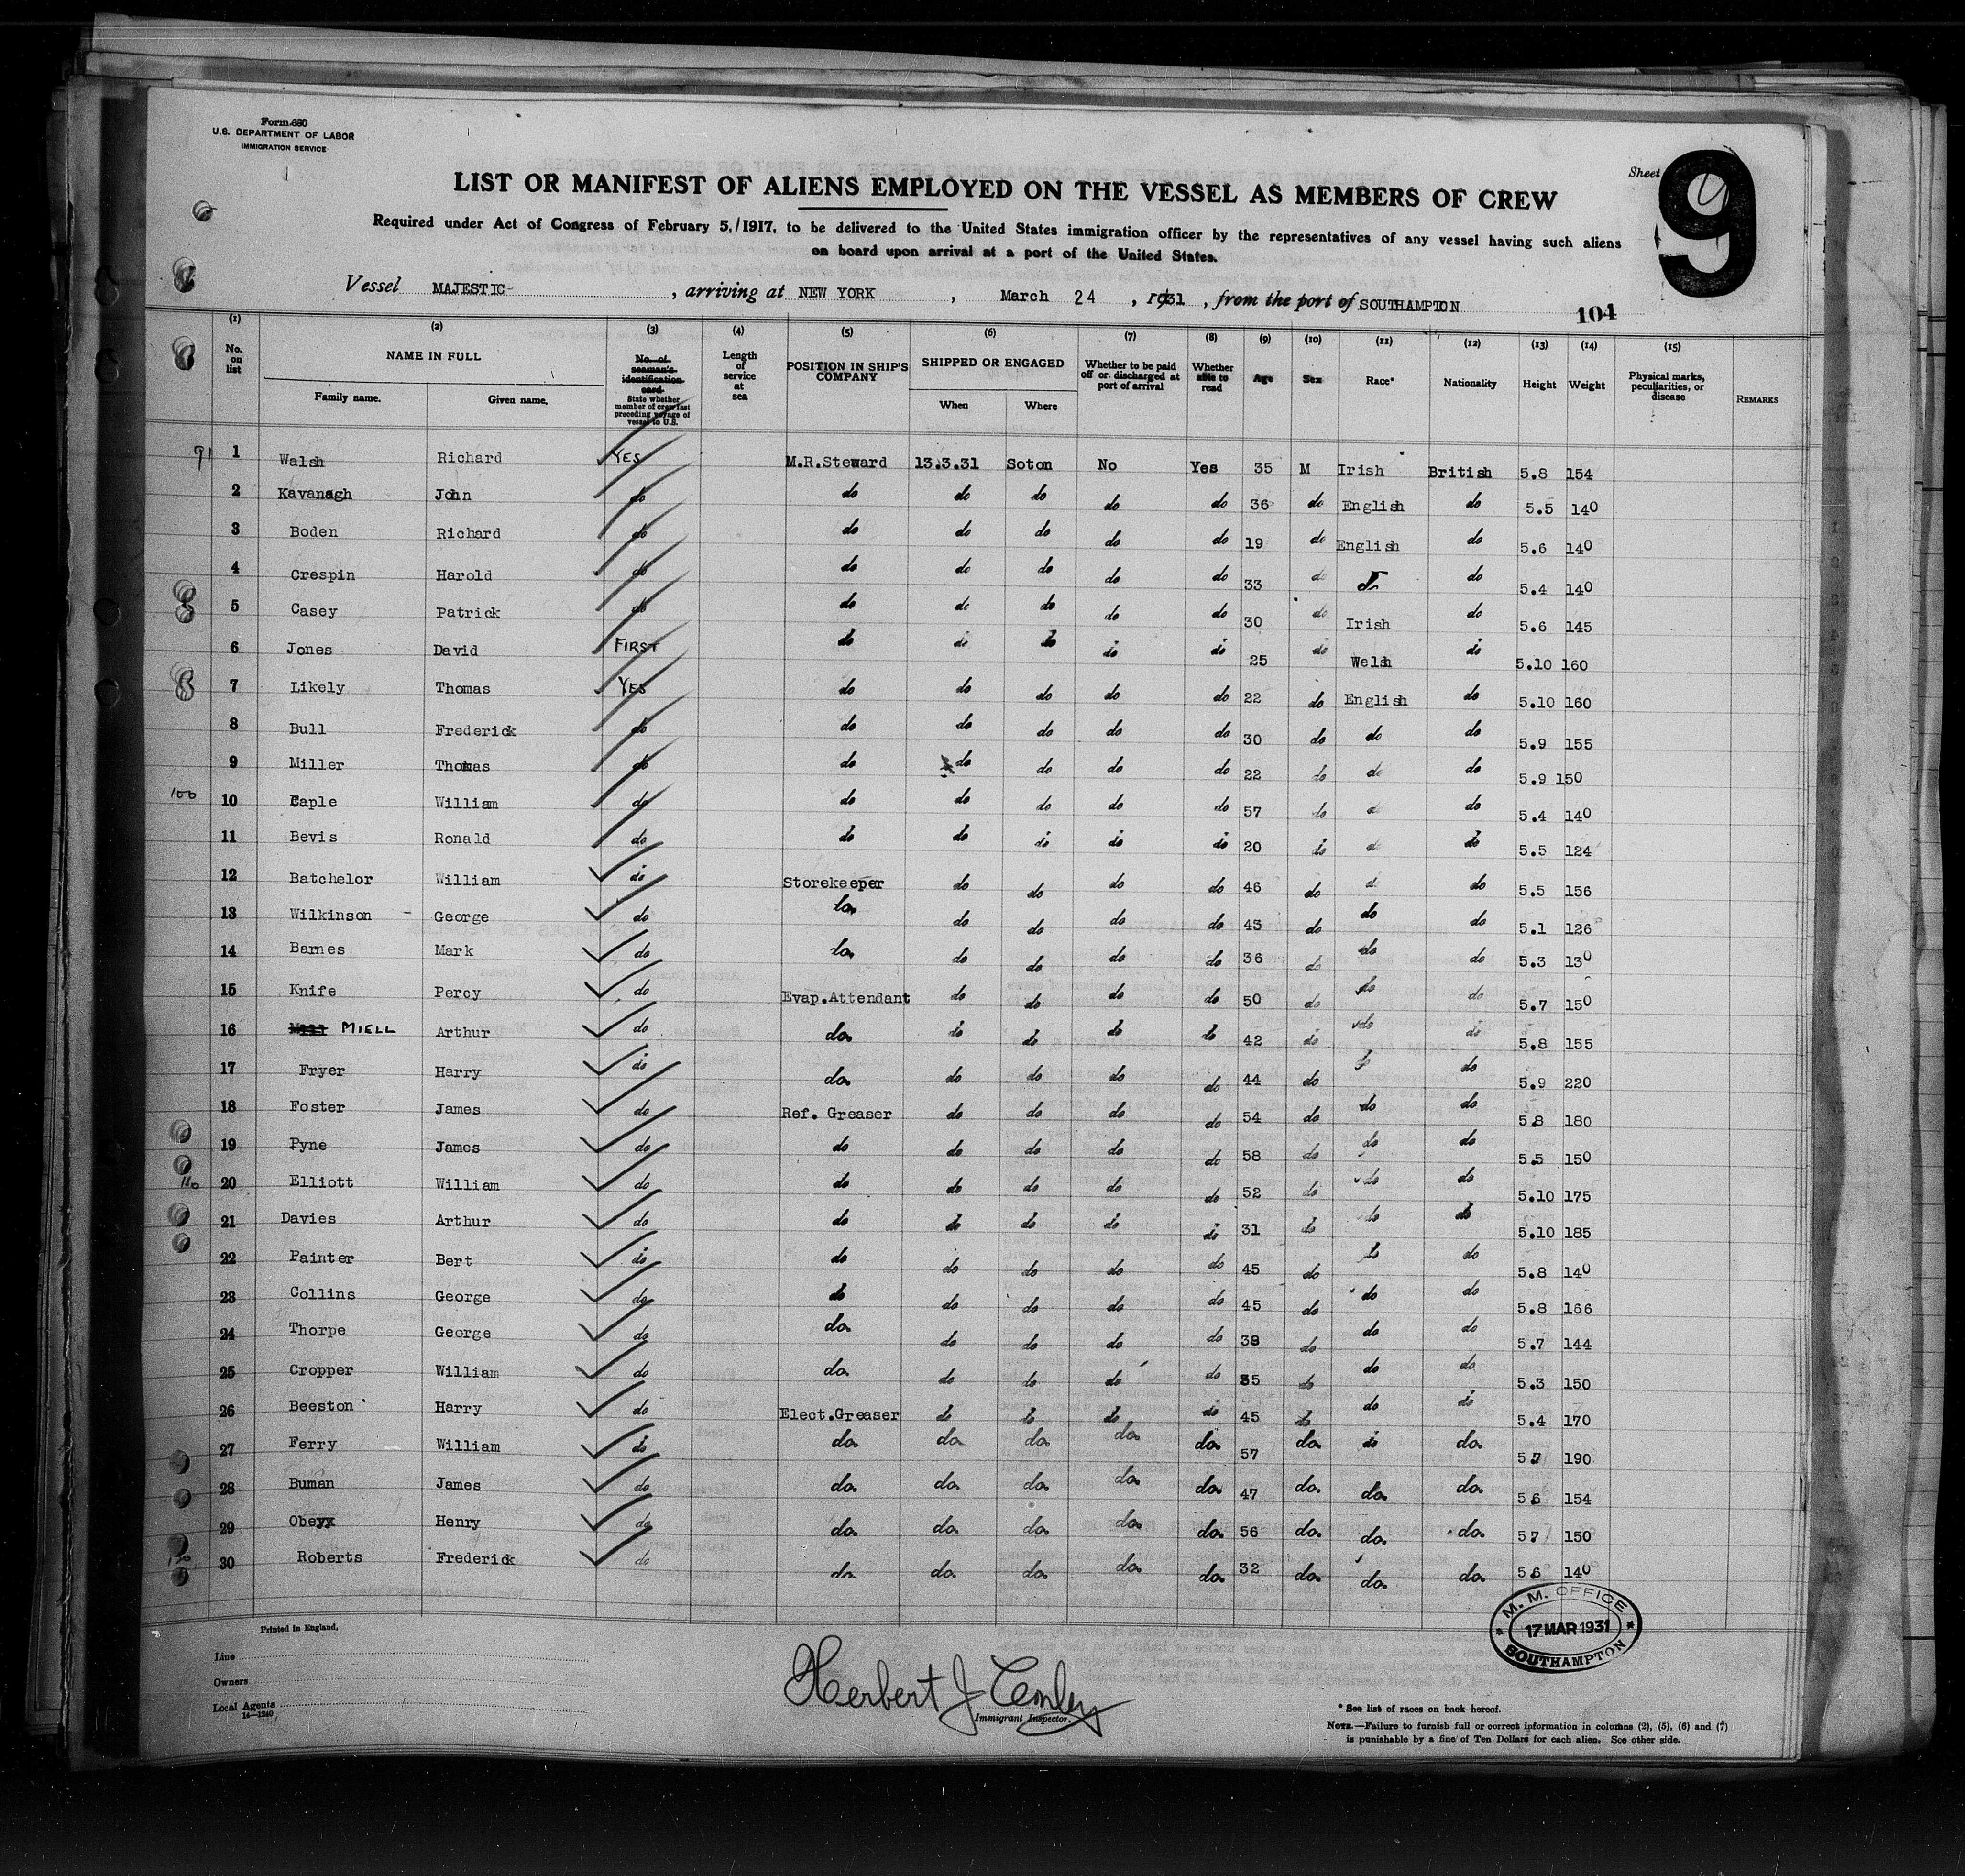 Form 680
U.S. DEPARTMENT OF LABOR
IMMIGRATION SERVICE
Sheet 9
LIST OR MANIFEST OF ALIENS EMPLOYED ON THE VESSEL AS MEMBERS OF CREW
Required under Act of Congress of February 5, 1917, to be delivered to the United States immigration officer by the representatives of any vessel having such aliens
on board upon arrival at a port of the United States.
Vessel MAJESTIC, arriving at NEW YORK, March 24, 1931, from the port of SOUTHAMPTON
104
(1) (2) (3) (4) (5) (6) (7) (8) (9) (10) (11) (12) (13) (14) (15)
No. on list NAME IN FULL Family name. Given name. No. of seaman's identification card. State whether member of crew last preceding voyage of vessel to U.S. Length of service at sea POSITION IN SHIP'S COMPANY SHIPPED OR ENGAGED When Where Whether to be paid off or discharged at port of arrival Whether able to read Age Sex Race* Nationality Height Weight Physical marks, peculiarities, or disease REMARKS
91 1 Walsh Richard YES M.R.Steward 13.3.31 Soton No Yes 35 M Irish British 5.8 154
2 Kavanagh John do do do do do do 36 do English do 5.5 140
3 Boden Richard do do do do do do 19 do English do 5.6 140
4 Crespin Harold do do do do do do 33 do do 5.4 140
5 Casey Patrick do do do do do do 30 do Irish do 5.6 145
6 Jones David FIRST do do do do do 25 do Welsh do 5.10 160
7 Likely Thomas YES do do do do do 22 do English do 5.10 160
8 Bull Frederick do do do do do do 30 do do do 5.9 155
9 Miller Thomas do do do do do do 22 do do do 5.9 150
100 10 Caple William do do do do do do 57 do do do 5.4 140
11 Bevis Ronald do do do do do do 20 do do do 5.5 124
12 Batchelor William do Storekeeper do do do do 46 do do do 5.5 156
13 Wilkinson George do do do do do do 43 do do do 5.1 126
14 Barnes Mark do do do do do do 36 do do do 5.3 130
15 Knife Percy do Evap.Attendant do do do do 50 do do do 5.7 150
16 MIELL Arthur do do do do do do 42 do do do 5.8 155
17 Fryer Harry do do do do do do 44 do do do 5.9 220
18 Foster James do Ref. Greaser do do do do 54 do do do 5.8 180
19 Pyne James do do do do do do 58 do do do 5.5 150
110 20 Elliott William do do do do do do 52 do do do 5.10 175
21 Davies Arthur do do do do do do 31 do do do 5.10 185
22 Painter Bert do do do do do do 45 do do do 5.8 140
23 Collins George do do do do do do 45 do do do 5.8 166
24 Thorpe George do do do do do do 38 do do do 5.7 144
25 Cropper William do do do do do do 35 do do do 5.3 150
26 Beeston Harry do Elect.Greaser do do do do 45 do do do 5.4 170
27 Ferry William do do do do do do 57 do do do 5 7 190
28 Buman James do do do do do do 47 do do do 5 6 154
29 Obeyx Henry do do do do do do 56 do do do 5 7 150
120 30 Roberts Frederick do do do do do do 32 do do do 5 6 140
M. M. OFFICE
17 MAR 1931
SOUTHAMPTON
Printed in England.
Line
Owners
Local Agents
14—1240
Herbert J
Immigrant Inspector.
* See list of races on back hereof.
NOTE.—Failure to furnish full or correct information in columns (2), (5), (6) and (7)
is punishable by a fine of Ten Dollars for each alien. See other side.